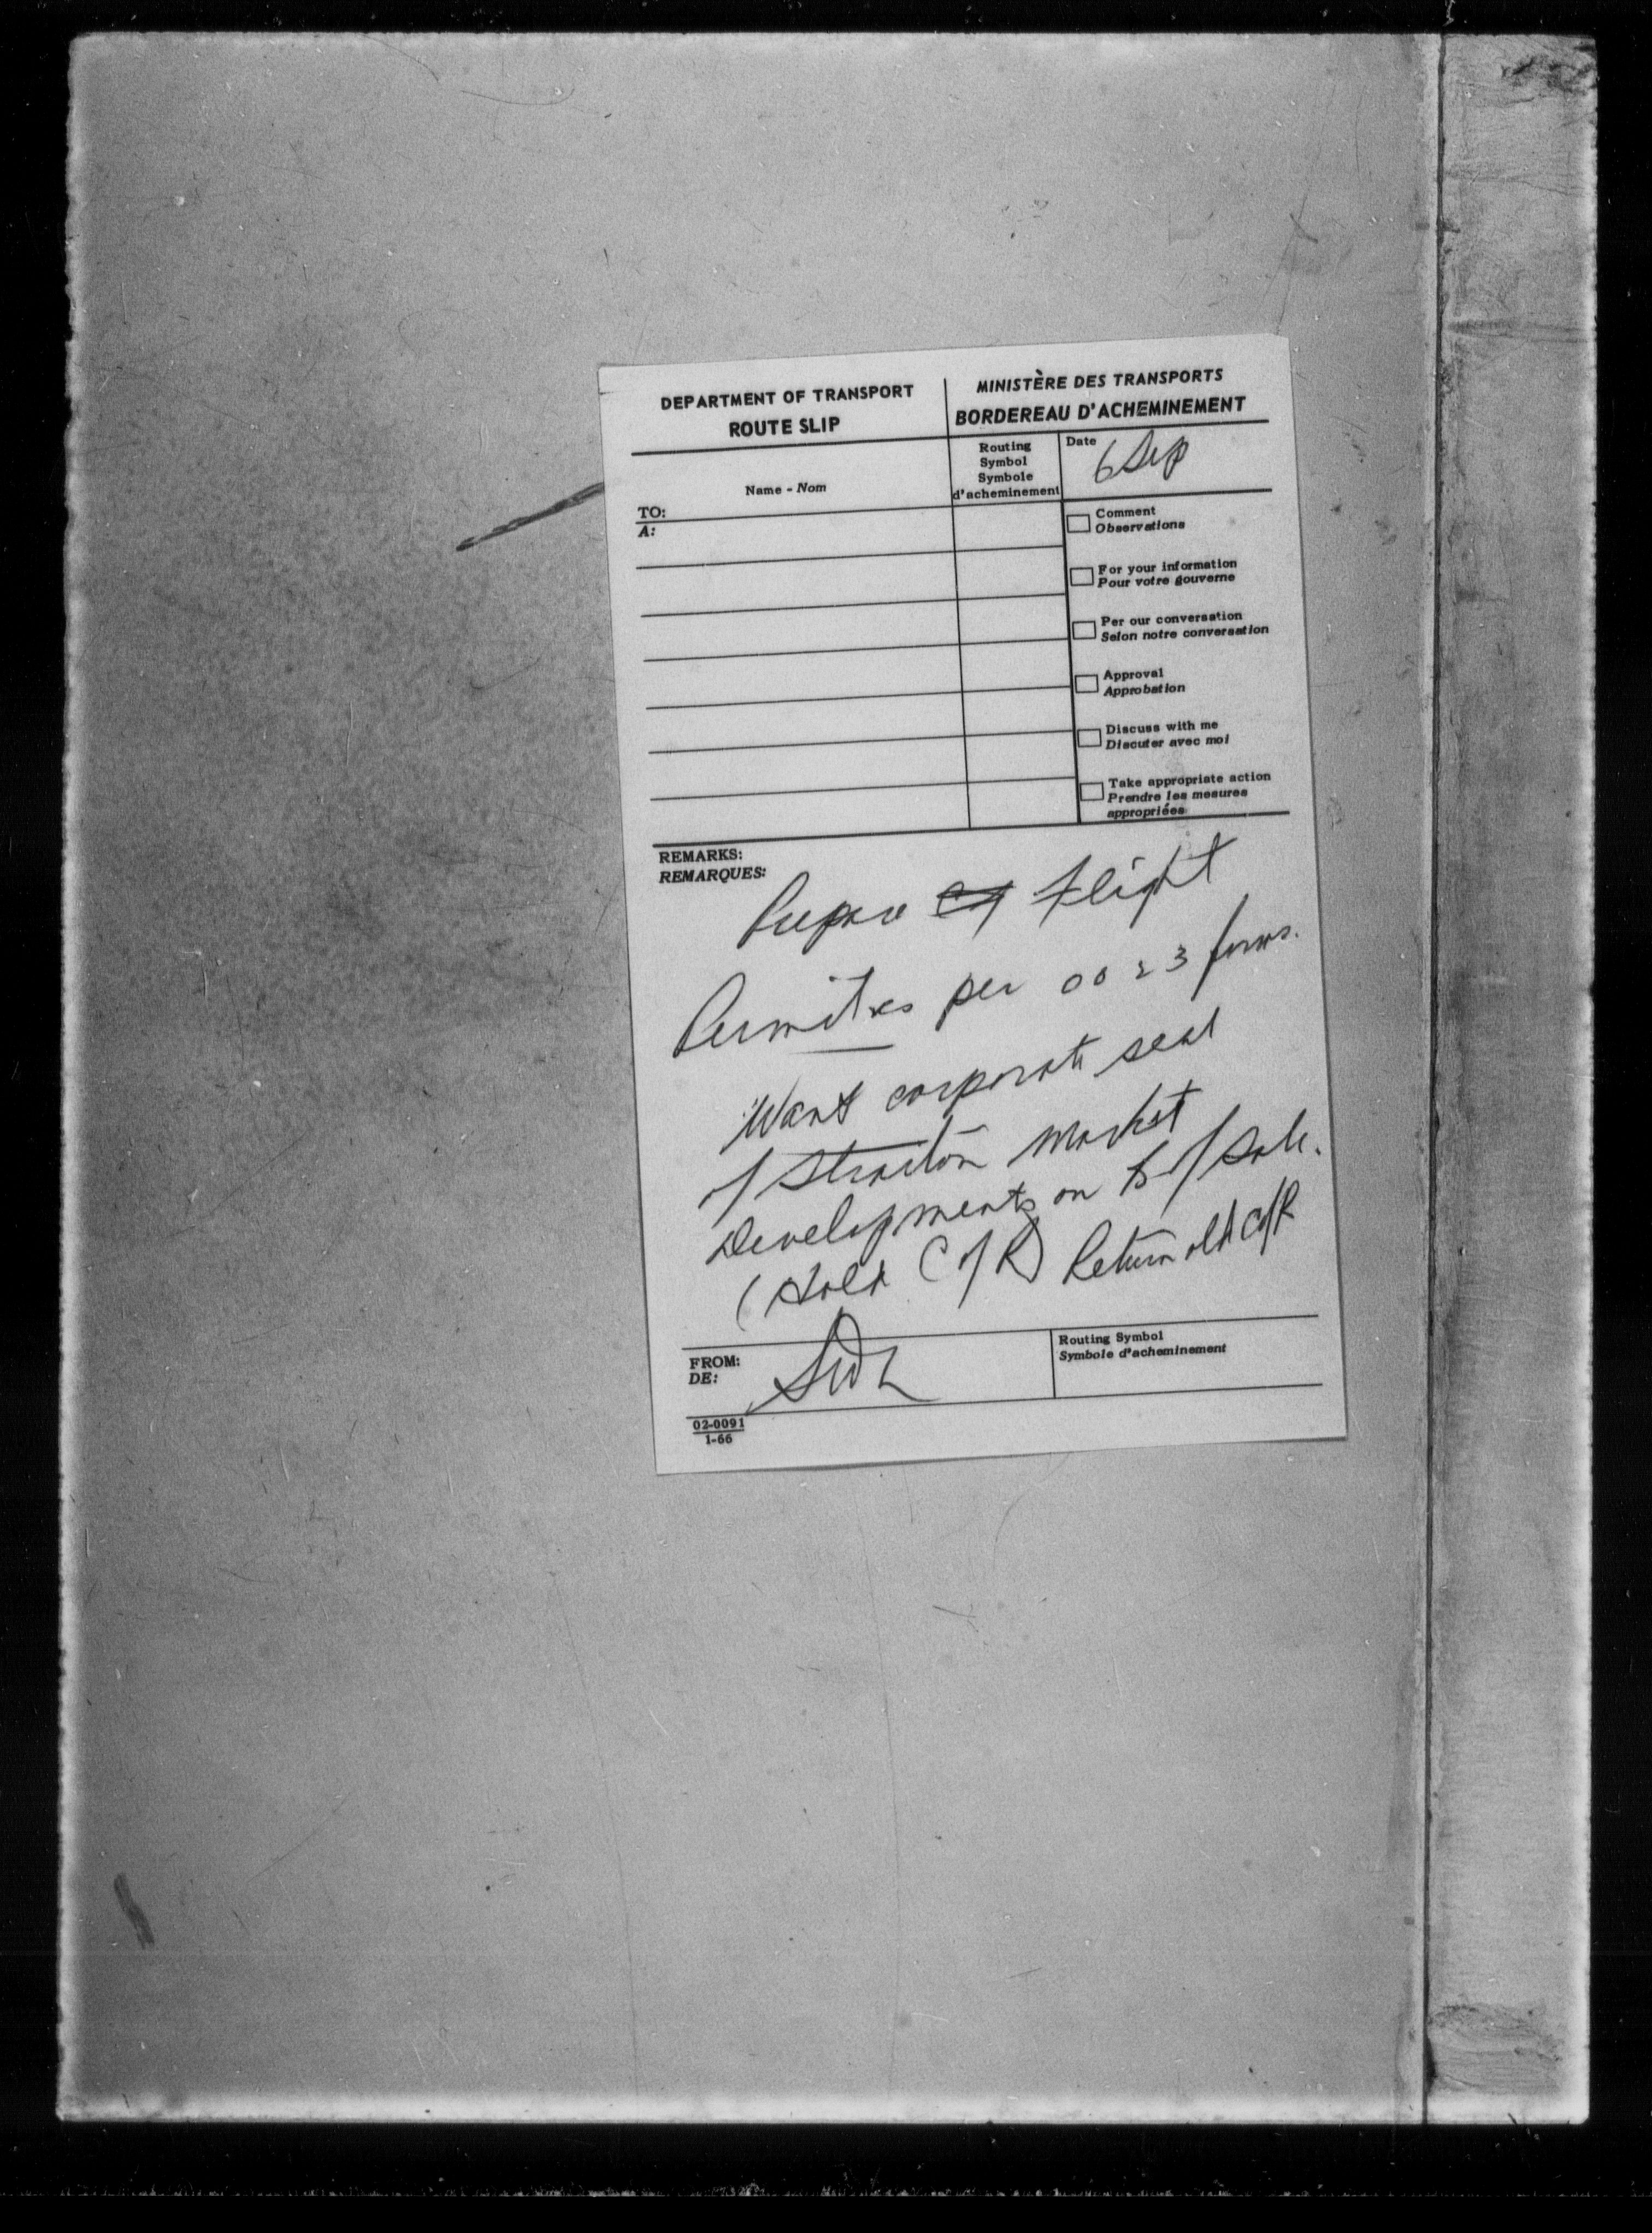 DEPARTMENT OF TRANSPORT
ROUTE SLIP
MINISTÈRE DES TRANSPORTS
BORDEREAU D'ACHEMINEMENT
Name - Nom
Routing
Symbol
Symbole
d'acheminement
Date 6 Sep
TO:
A:
Comment
Observations
For your information
Pour votre gouverne
Per our conversation
Selon notre conversation
Approval
Approbation
Discuss with me
Discuter avec moi
Take appropriate action
Prendre les mesures
appropriées
REMARKS:
REMARQUES:
Prepare flight
Permit per 0023 forms.
Want corporate seal
of market
Developments on B of Sale.
(Hold C of R) Return old C of R
FROM:
DE:
Routing Symbol
Symbole d'acheminement
02-0091
1-66